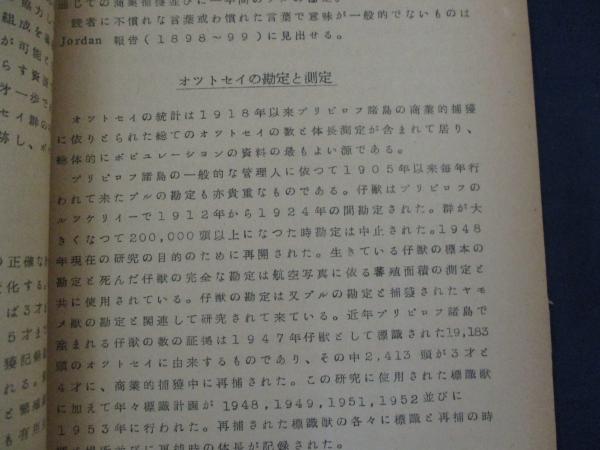 組成を
が可能と
らす資源
オ一歩で
セイ群の
跡し、
の正確な
変化する。
ば3才
5才ま
獲記録
れる。
と繁殖
も有用
通じての商業捕獲並びに一年間の
読者に不慣れな言葉或わ慣れた言葉で意味が一般的でないものは
Jordan 報告(1898~99)に見出せる。
オツトセイの勘定と測定
オツトセイの統計は1918年以来プリビロフ諸島の商業的捕獲
に依りとられた総てのオツトセイの数と体長測定が含まれて居り、
総体的にポピユレーシヨンの資料の最もよい源である。
プリビロフ諸島の一般的な管理人に依つて1905年以来毎年行
われて来たブルの勘定も亦貴重なものである。仔獣はプリビロフの
ルツケリイーで1912年から1924年の間勘定された。群が大
きくなつて200,000頭以上になつた時勘定は中止された。1948
年現在の研究の目的のために再開された。生きている仔獣の標本の
勘定と死んだ仔獣の完全な勘定は航空写真に依る蕃殖面積の測定と
共に使用されている。仔獣の勘定は又ブルの勘定と捕獲されたヤモ
メ獣の勘定と関連して研究されて来ている。近年プリビロフ諸島で
産まれる仔獣の数の証拠は1947年仔獣として標識された19,183
頭のオツトセイに由来するものであり、その中2,413 頭が3才と
4才に、商業的捕獲中に再捕された。この研究に使用された標識獣
に加えて年々標識計画が 1948,1949,1951,1952並びに
1953年に行われた。再捕された標識獣の各々に標識と再捕の時
の場所並びに再捕時の体長が記録された。